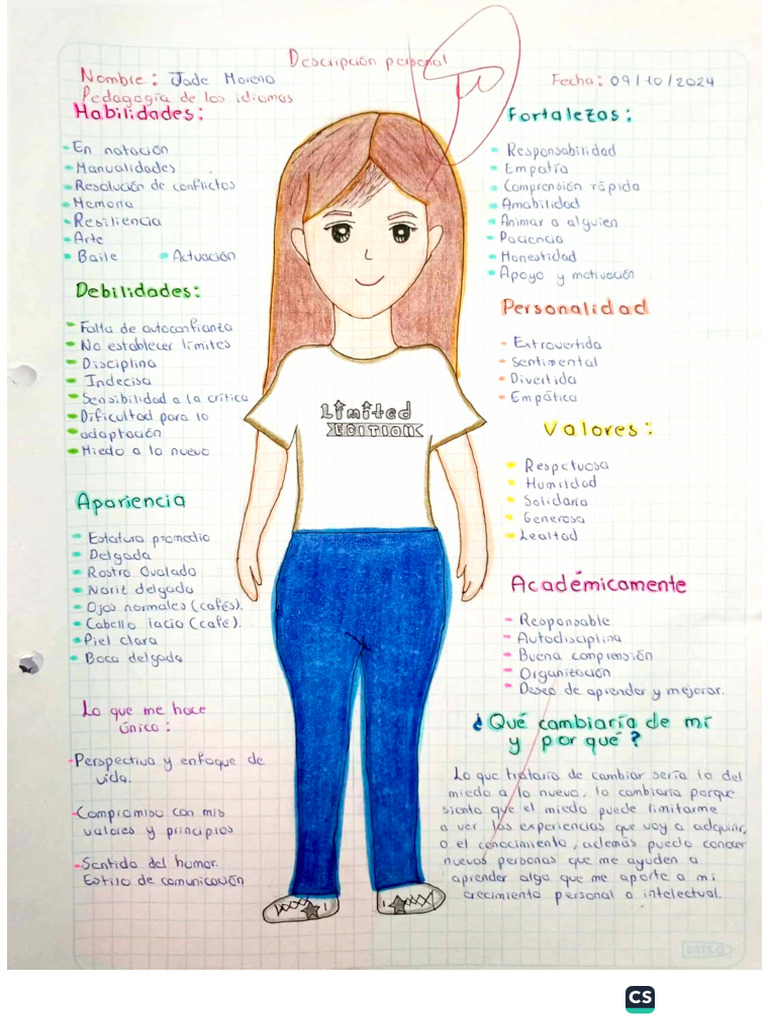 Descripción personal
Nombre: Jade Moreno
Fecha: 09/10/2024
Pedagogía de los idiomas
Habilidades:
- En natación
- Manualidades
- Resolución de conflictos
- Memoria
- Resiliencia
- Arte
- Baile - Actuación
Debilidades:
- Falta de autoconfianza
- No establecer límites
- Disciplina
- Indecisa
- Sensibilidad a la crítica
- Dificultad para la
- adaptación
- Miedo a lo nuevo
Apariencia
- Estatura promedio
- Delgada
- Rostro Ovalado
- Nariz delgada
- Ojos normales (cafés).
- Cabello lacio (café).
- Piel clara
- Boca delgada
Lo que me hace
única:
- Perspectiva y enfoque de
vida.
- Compromiso con mis
valores y principios
- Sentido del humor.
Estilo de comunicación
Limited
EDITION
Fortalezas:
- Responsabilidad
- Empatía
- Comprensión rápida
- Amabilidad
- Animar a alguien
- Paciencia
- Honestidad
- Apoyo y motivación
Personalidad
- Extrovertida
- Sentimental
- Divertida
- Empática
Valores:
- Respetuosa
- Humildad
- Solidaria
- Generosa
- Lealtad
Académicamente
- Responsable
- Autodisciplina
- Buena conprensión
- Organización
- Deseo de aprender y mejorar.
¿Qué cambiaría de mí
y por qué?
Lo que trataría de cambiar sería lo del
miedo a lo nuevo, lo cambiaría porque
siento que el miedo puede limitarme
a ver las experiencias que voy a adquirir,
o el conocimiento, además puedo conocer
nuevas personas que me ayuden a
aprender algo que me aporte a mi
crecimiento personal o intelectual.
ESTILO
CS